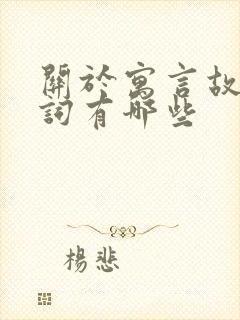 關於寓言故
詞有哪些
楊悲